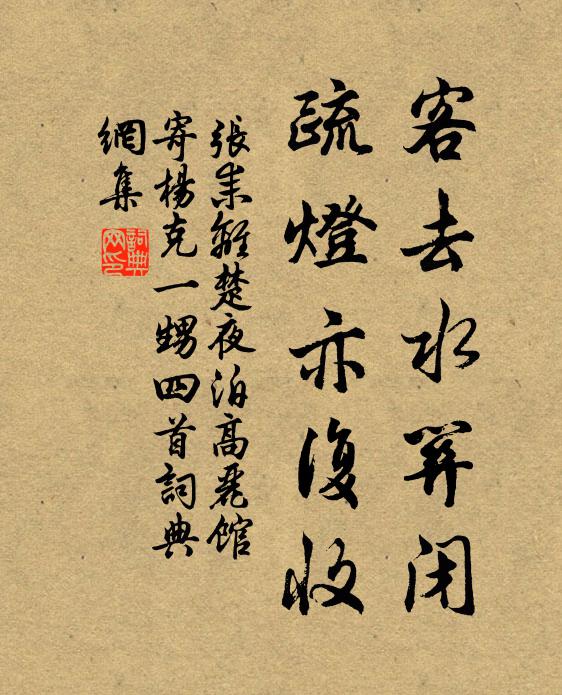 客去水關閉
疏燈亦復收
張耒離楚夜泊高麗館
寄楊克一甥四首詞典
網集
詞典
网印